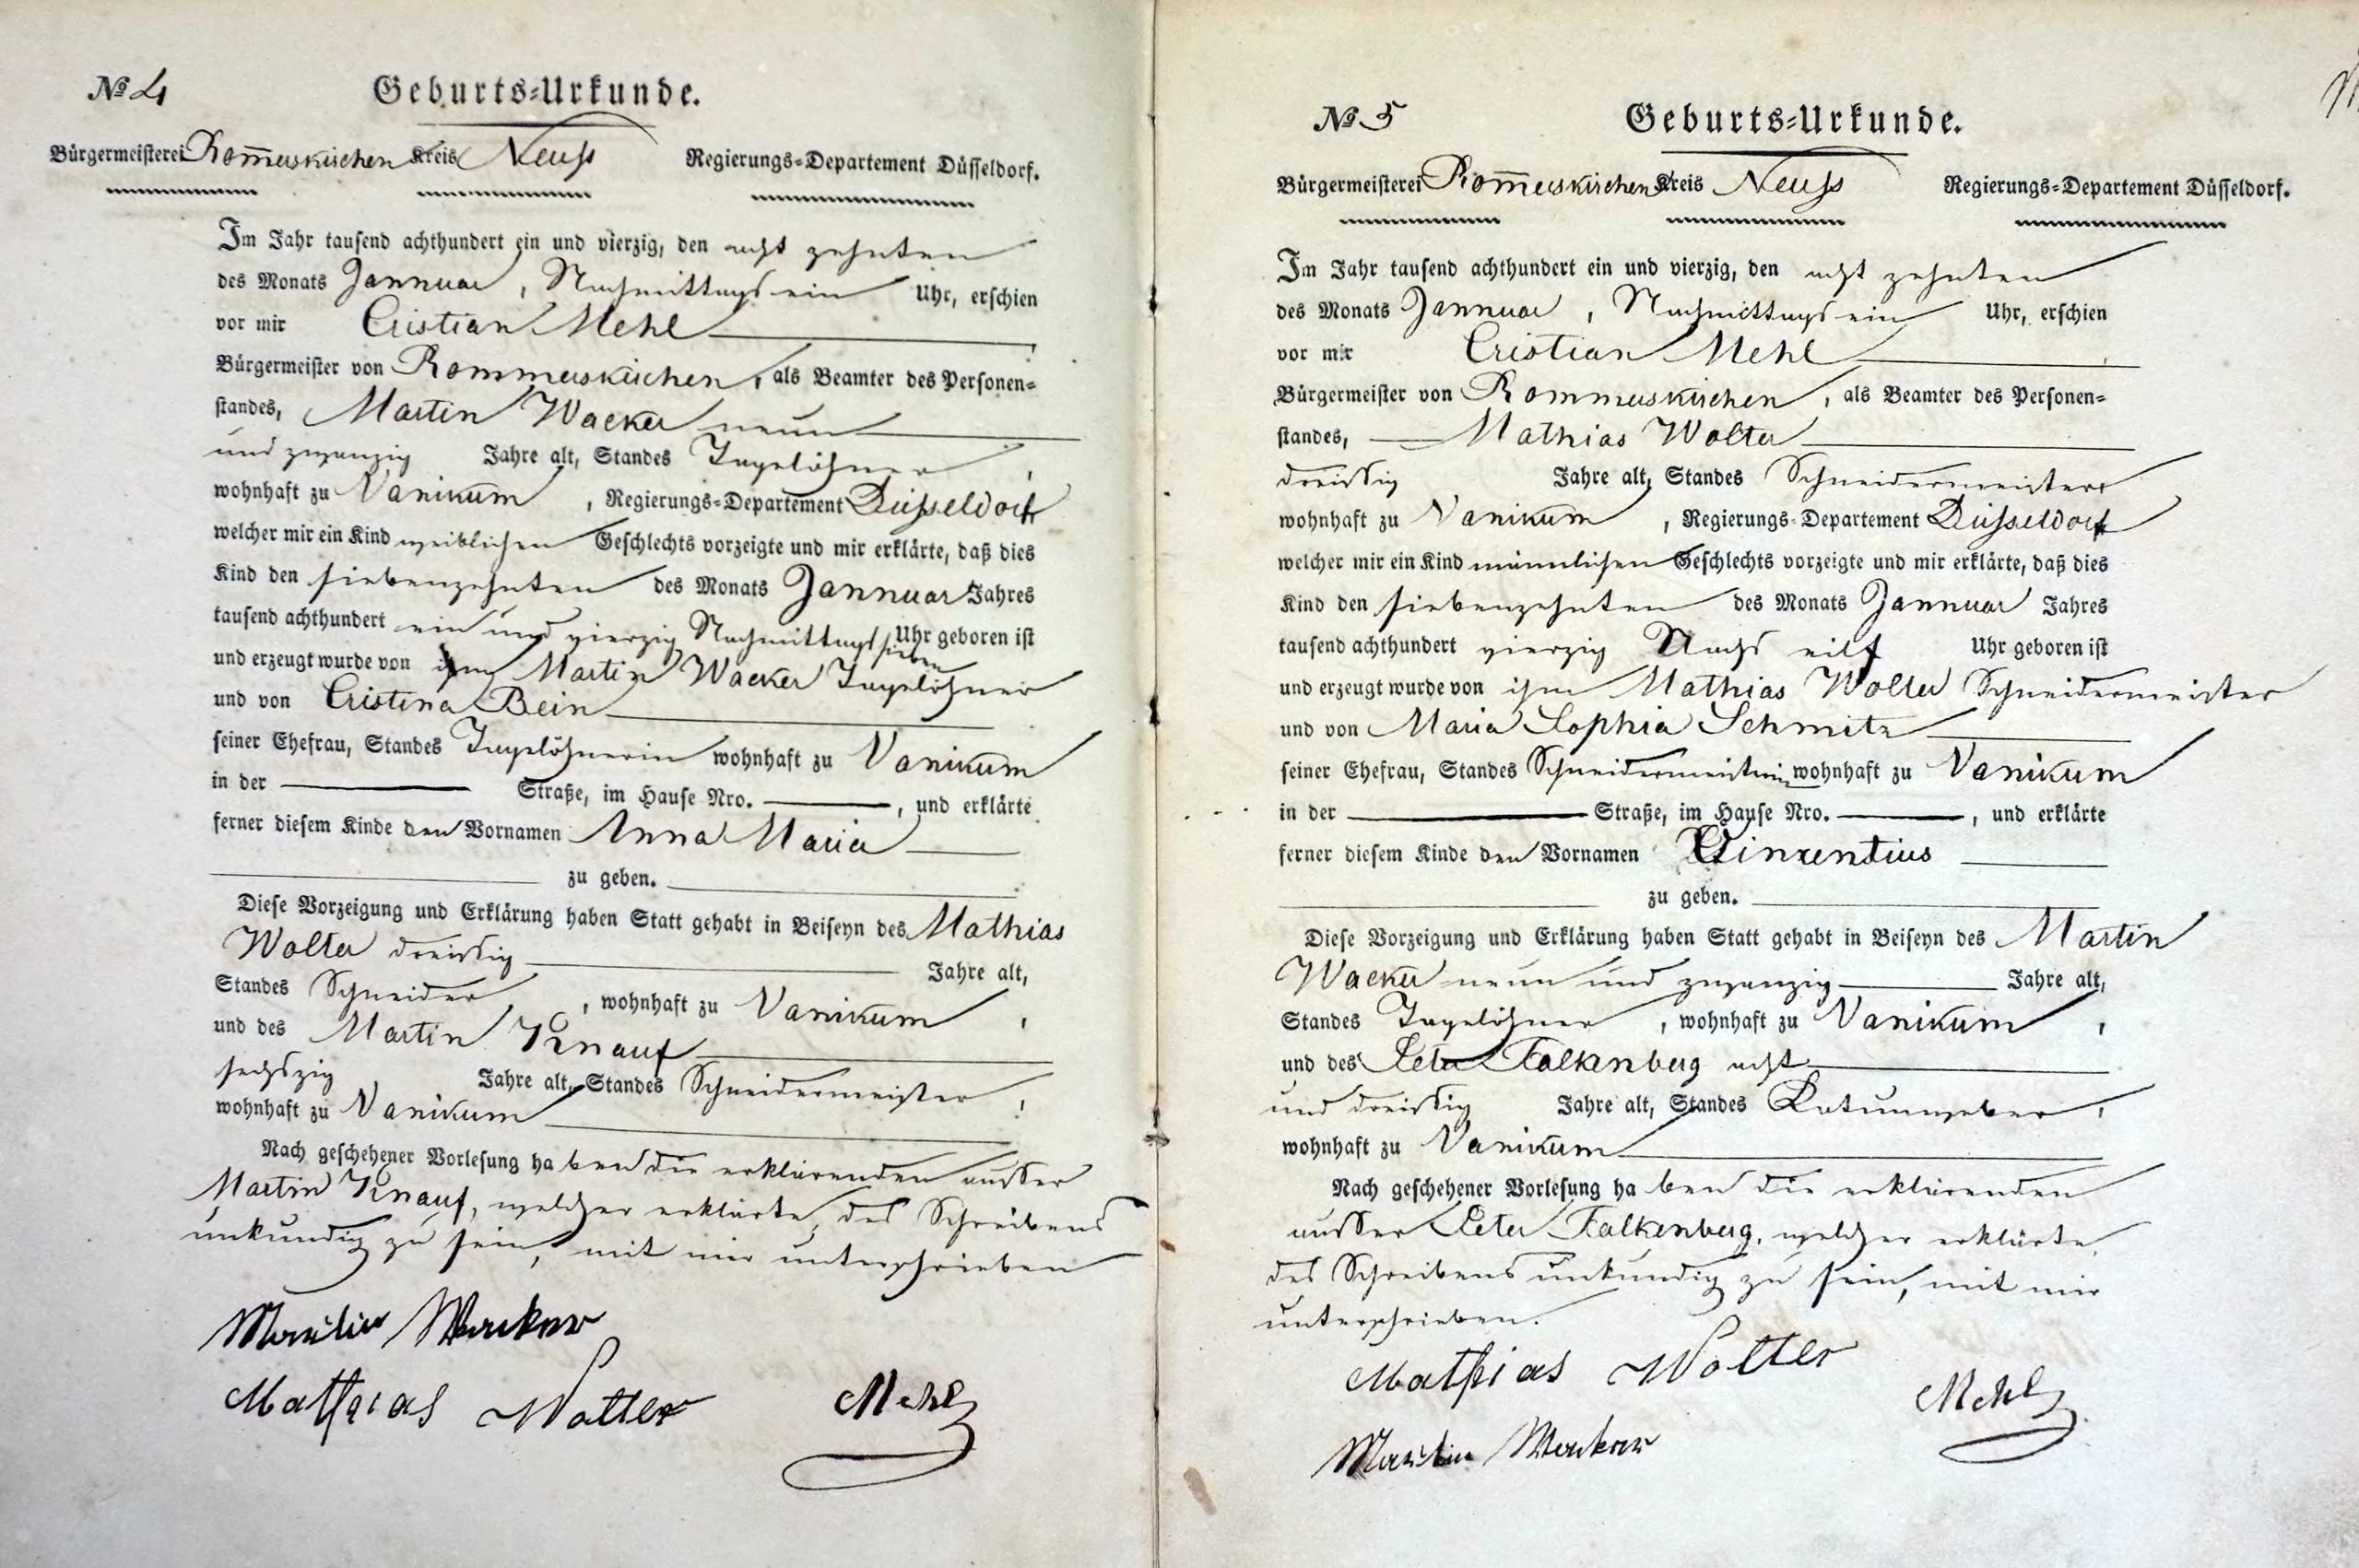 № 4
Geburts=Urkunde.
Bürgermeisterei Rom̅erskirchen Kreis Neuss Regierungs=Departement Düsseldorf.
Im Jahr tausend achthundert ein und vierzig, den acht zehnten
des Monats Jannuar, Nachmittags ein Uhr, erschien
vor mir Cristian Mehl
Bürgermeister von Rommerskirchen, als Beamter des Personen=
standes, Martin Wacker neun
und zwanzig Jahre alt, Standes Tagelöhner,
wohnhaft zu Vanikum, Regierungs=Departement Düsseldorf
welcher mir ein Kind weiblichen Geschlechts vorzeigte und mir erklärte, daß dies
Kind den siebenzehnten des Monats Jannuar Jahres
tausend achthundert ein und vierzig Nachmittags sieben Uhr geboren ist
und erzeugt wurde von ihm Martin Wacker Tagelöhner
und von Cristina Bein
seiner Ehefrau, Standes Tagelöhnerin wohnhaft zu Vanikum
in der Straße, im Hause Nro. , und erklärte
ferner diesem Kinde den Vornamen Anna Maria
zu geben.
Diese Vorzeigung und Erklärung haben Statt gehabt in Beiseyn des Mathias
Wolter dreissig Jahre alt,
Standes Schneider, wohnhaft zu Vanikum,
und des Martin Knauf
sechszig Jahre alt, Standes Schneidermeister,
wohnhaft zu Vanikum
Nach geschehener Vorlesung haben die erklärenden ausser
Martin Knauf, welcher erklärte, des Schreibens
unkundig zu sein, mit mir unterschrieben
Martin Wacker
Mathias Wolter Mehl
№ 5
Geburts=Urkunde.
Bürgermeisterei Rom̅erskirchen Kreis Neuss Regierungs=Departement Düsseldorf.
Im Jahr tausend achthundert ein und vierzig, den acht zehnten
des Monats Jannuar, Nachmittags ein Uhr, erschien
vor mir Cristian Mehl
Bürgermeister von Rommerskirchen, als Beamter des Personen=
standes, Mathias Wolter
dreissig Jahre alt, Standes Schneidermeister
wohnhaft zu Vanikum, Regierungs=Departement Düsseldorf
welcher mir ein Kind männlichen Geschlechts vorzeigte und mir erklärte, daß dies
Kind den siebenzehnten des Monats Jannuar Jahres
tausend achthundert vierzig Nachts eilf Uhr geboren ist
und erzeugt wurde von ihm Mathias Wolter Schneidermeister
und von Maria Sophia Schmitz
seiner Ehefrau, Standes Schneidermeisterin wohnhaft zu Vanikum
in der Straße, im Hause Nro. , und erklärte
ferner diesem Kinde den Vornamen Vinzentius
zu geben.
Diese Vorzeigung und Erklärung haben Statt gehabt in Beiseyn des Martin
Wacker neun und zwanzig Jahre alt,
Standes Tagelöhner, wohnhaft zu Vanikum,
und des Peter Falkenberg acht
und dreissig Jahre alt, Standes
wohnhaft zu Vanikum
Nach geschehener Vorlesung haben die erklärenden
ausser Peter Falkenberg, welcher erklärte,
des Schreibens unkundig zu sein, mit mir
unterschrieben.
Mathias Wolter
Mehl
Martin Wacker